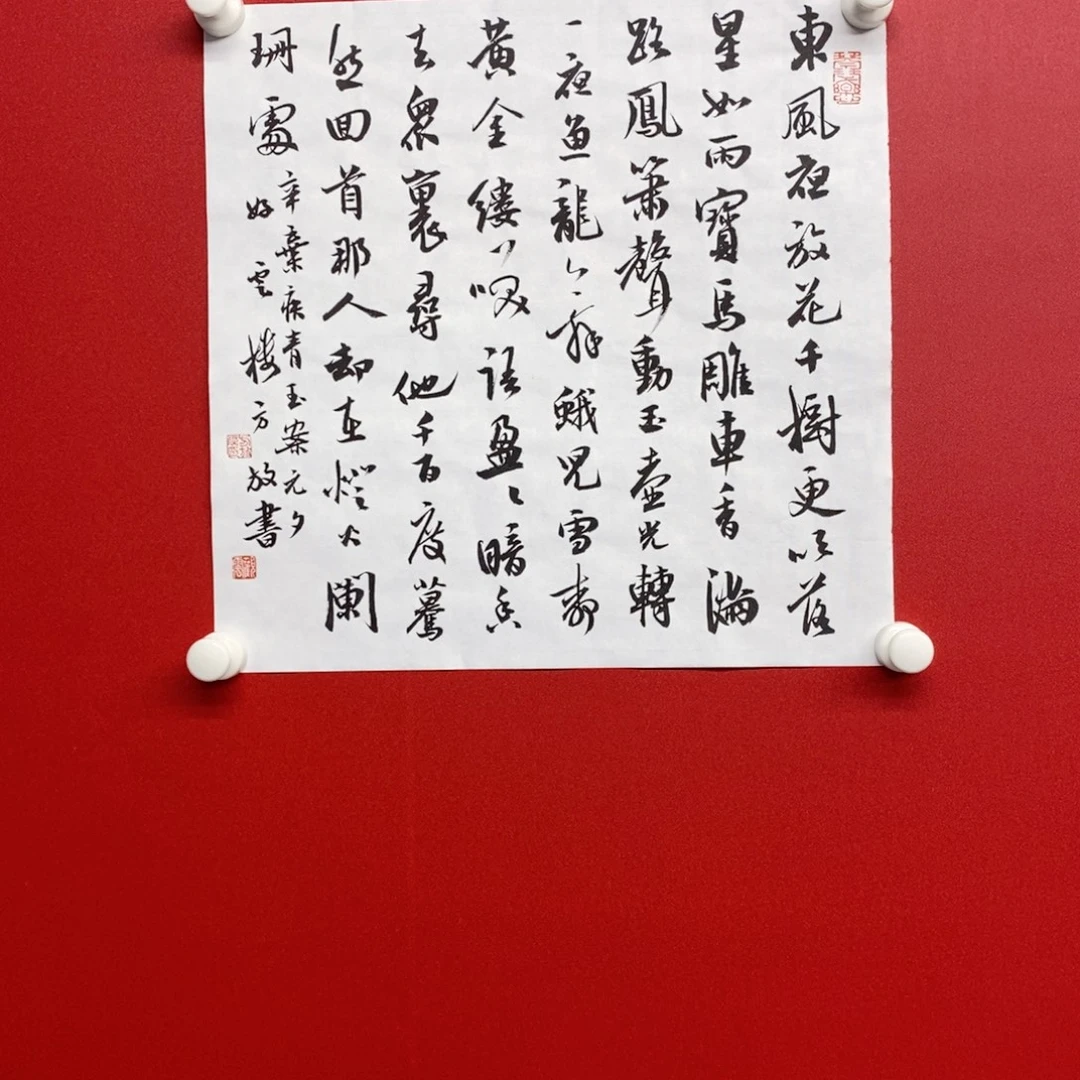 東風夜放花千樹更吹落
星如雨寶馬雕車香滿
路鳳簫聲動玉壺光轉
一夜魚龍舞蛾兒雪柳
黃金縷咲語盈々暗香
去眾裏尋他千百度驀
然回首那人却在燈火闌
珊處
辛棄疾青玉案元夕
好雲樓方放書